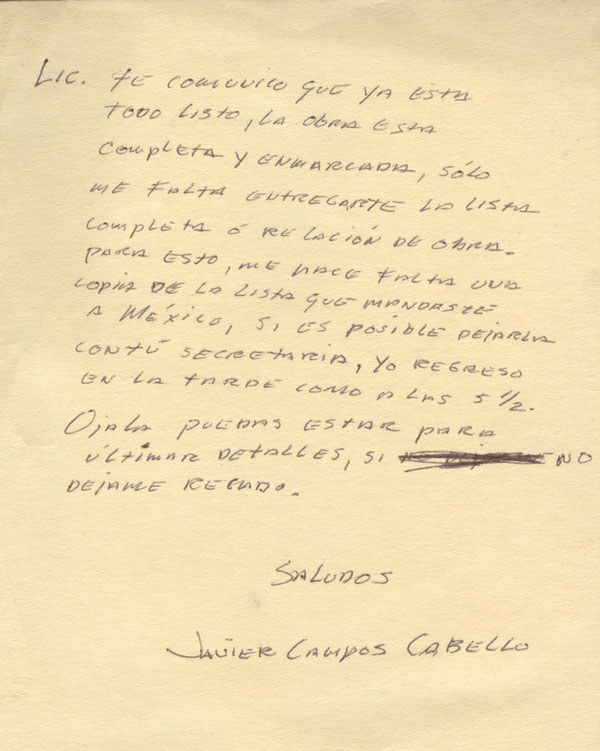 LIC. TE COMUNICO QUE YA ESTA
TODO LISTO, LA OBRA ESTA
COMPLETA Y ENMARCADA, SÓLO
ME FALTA ENTREGARTE LA LISTA
COMPLETA Ó RELACIÓN DE OBRA.
PARA ESTO, ME HACE FALTA UNA
COPIA DE LA LISTA QUE MANDASTE
A MÉXICO, SI ES POSIBLE DEJARLA
CON TÚ SECRETARIA, YO REGRESO
EN LA TARDE COMO A LAS 5 1/2.
OJALA PUEDAS ESTAR PARA
ÚLTIMAR DETALLES, SI NO
DEJAME RECADO.
SALUDOS
JAVIER CAMPOS CABELLO